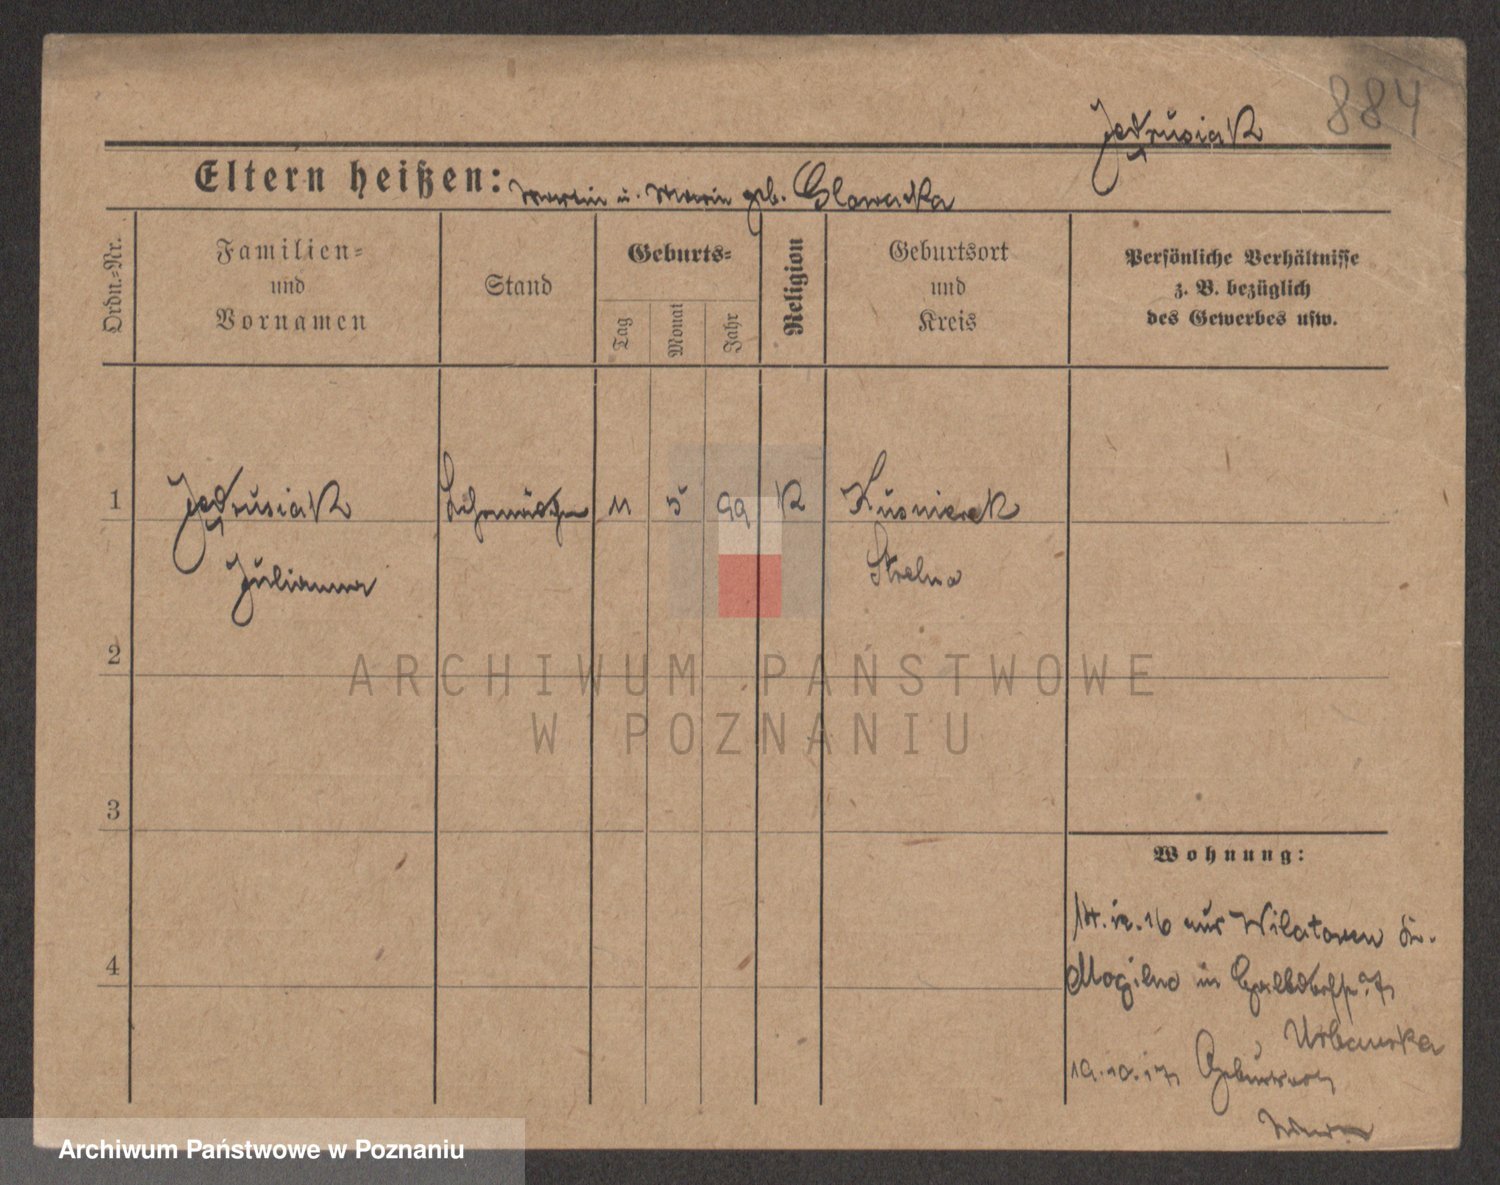 884
Jędrusiak
Eltern heißen: Martin u. Marie geb. Glowacka
Ordn.-Nr.
Familien-
und
Vornamen
Stand
Geburts-
Tag
Monat
Jahr
Religion
Geburtsort
und
Kreis
Persönliche Verhältnisse
z. B. bezüglich
des Gewerbes usw.
1
Jędrusiak
Julianna
11
5
99
K
Kusnierek
Strelno
2
ARCHIWUM PAŃSTWOWE
W POZNANIU
3
Wohnung:
4
14.12.16 aus Wilatowen Kr.
Mogilno in
Urbanska
19.10.17 Geburtsort
Archiwum Państwowe w Poznaniu